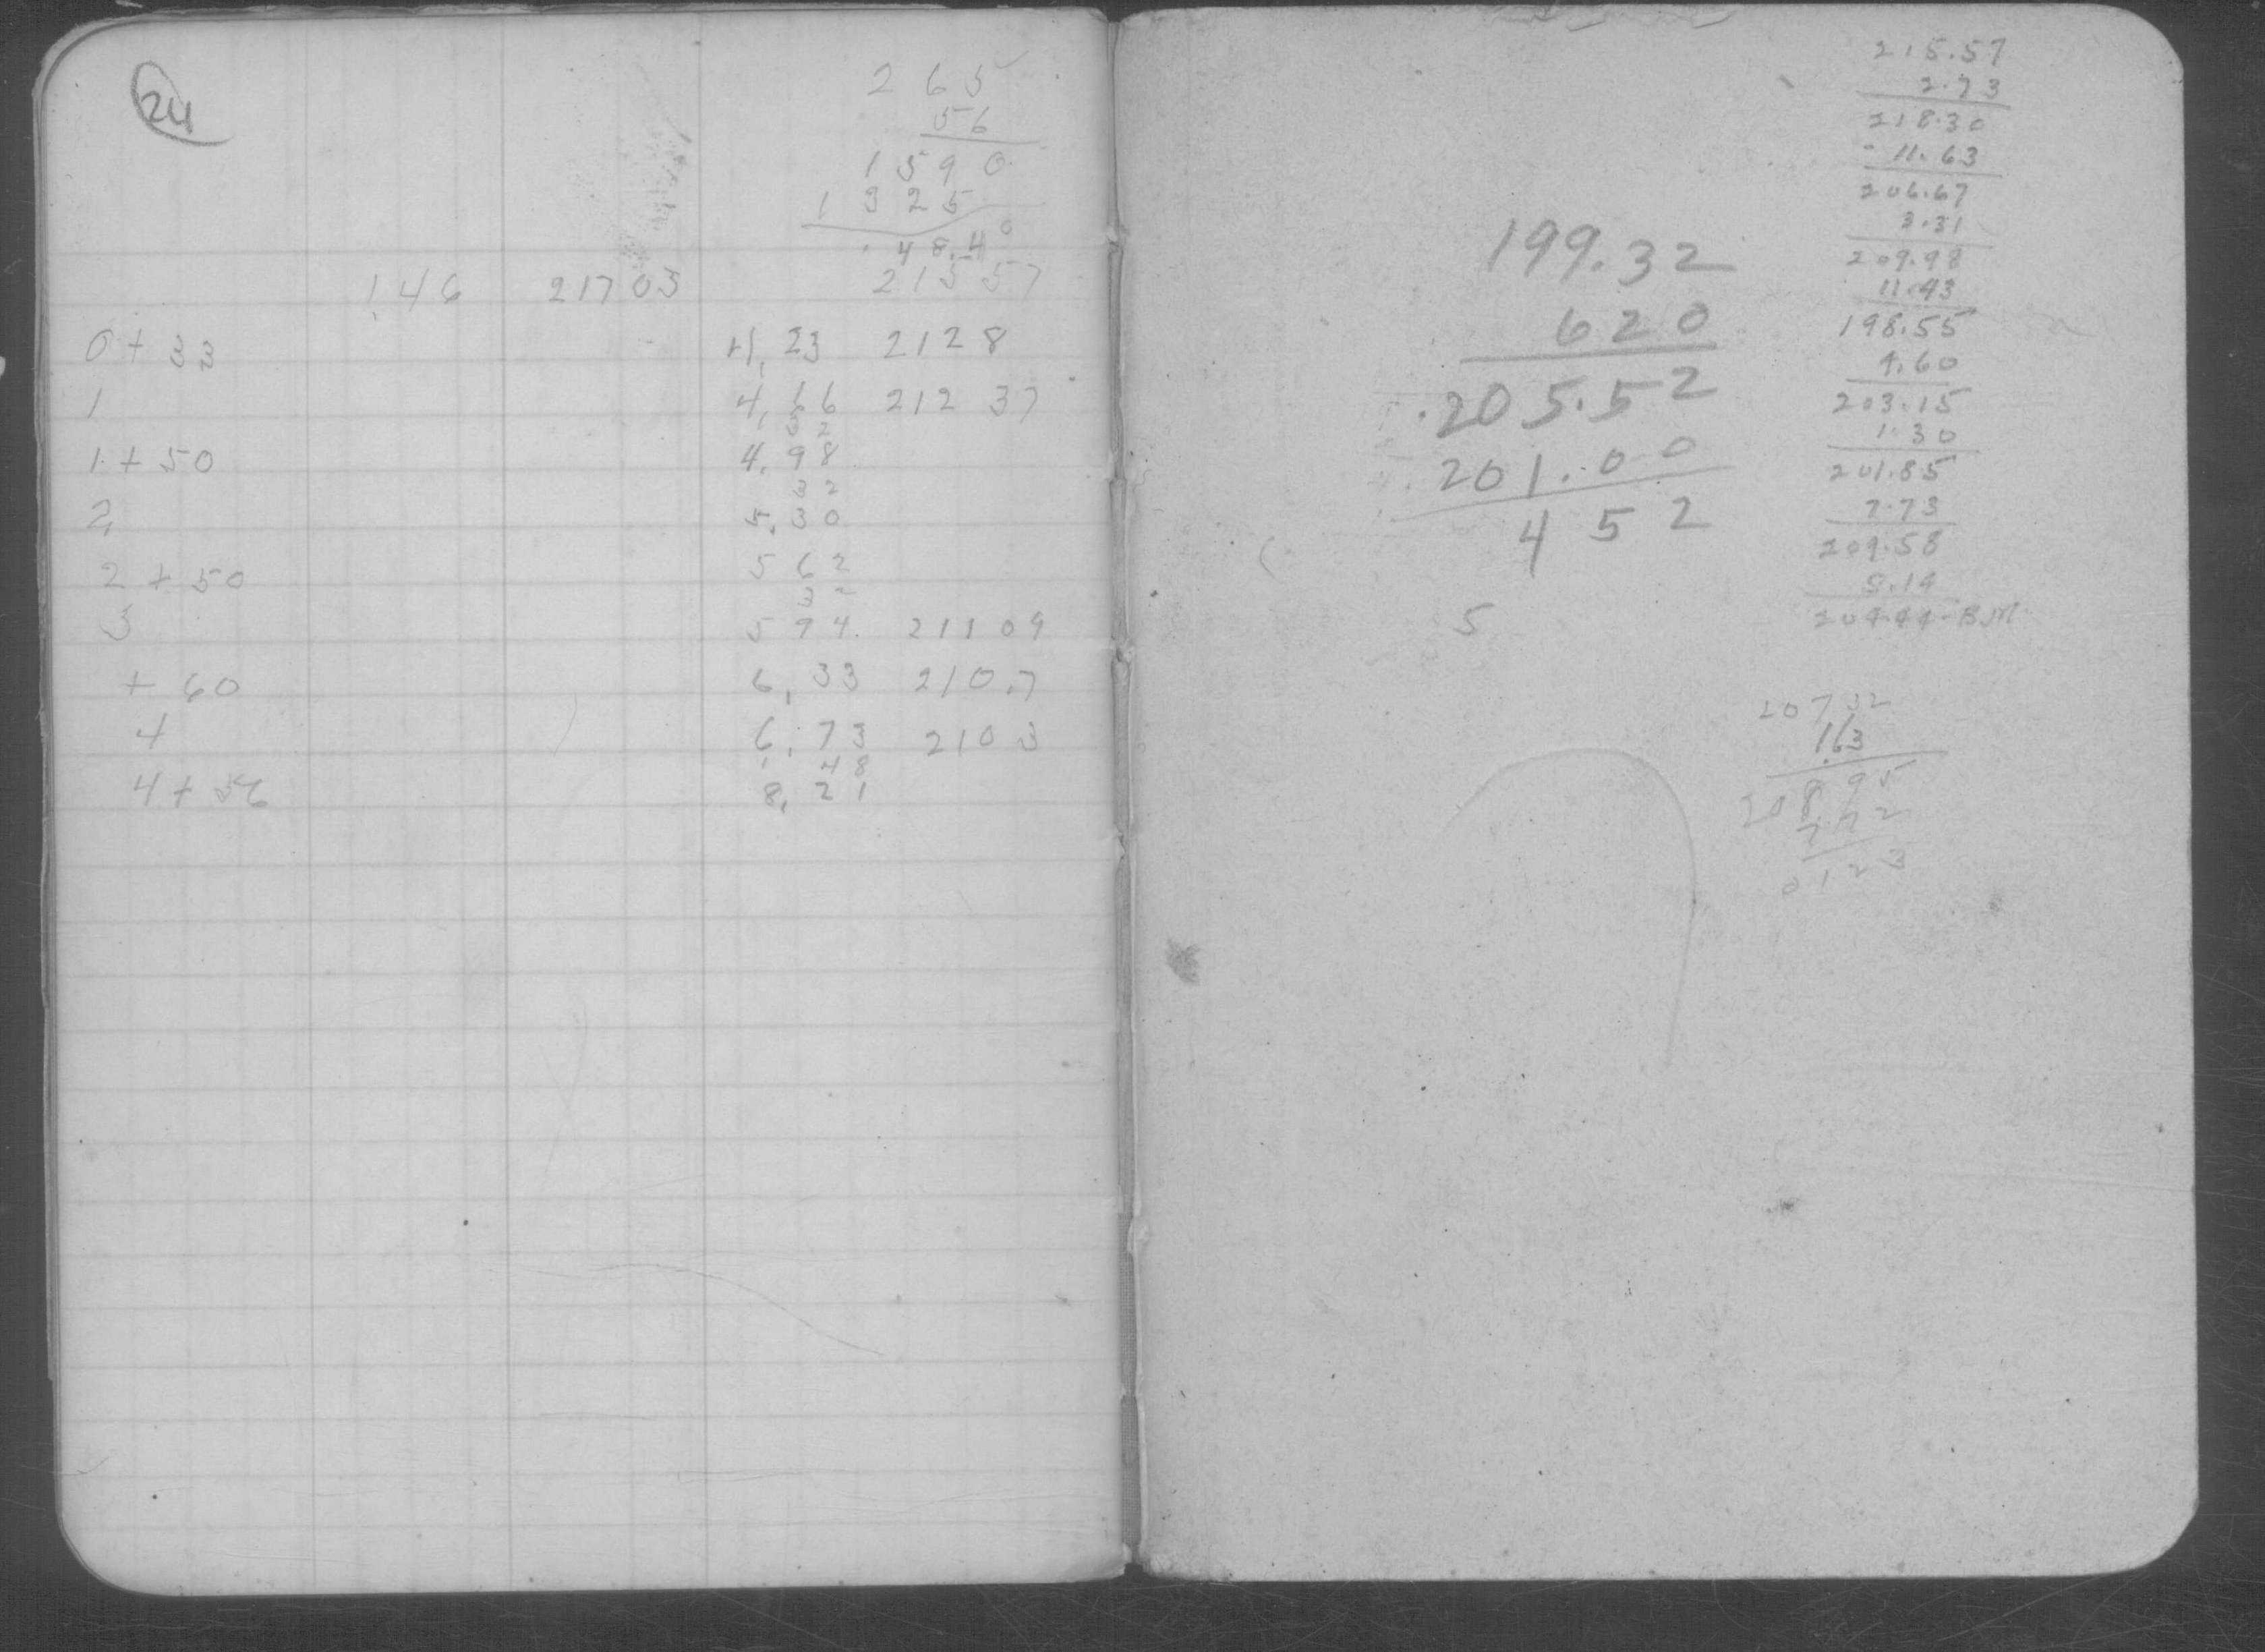 24
2 6 5
5 6
1 5 9 0
1 3 2 5
. 4 8.4 0
1.46 217 03 215 57
0 + 33 4,23 212 8
1 4,66 212 37
3 2
1 + 50 4,98
3 2
2, 5.30
2 + 50 5 62
3 2
3 5 94 211 09
+ 60 6,33 210.7
4 6.73 210 3
1 48
4 + 56 8,21
199.32
620
.205.52
.201.00
4 5 2
5
215.57
2.73
218.30
11.63
206.67
3.31
209.98
11.43
198.55
4.60
203.15
1.30
201.85
7.73
209.58
209.44-B.M
207 32
1.63
208 95
7 7 2
0 1 2 3